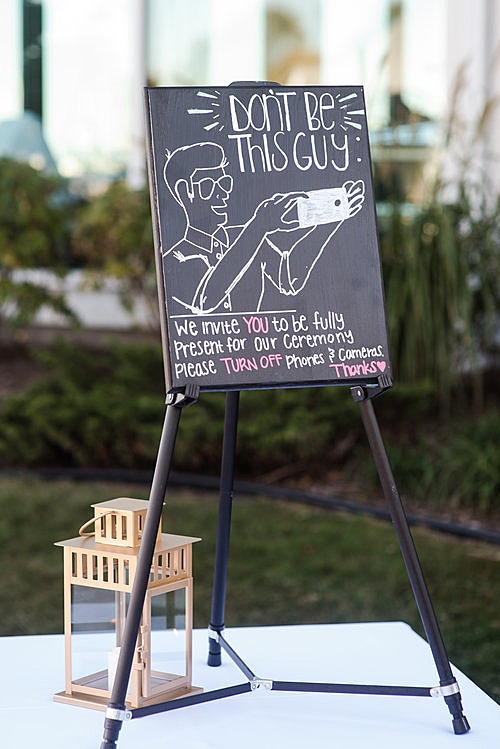 DON'T BE
THIS GUY:
We invite YOU to be fully
Present for our Ceremony
Please TURN OFF Phones & Cameras.
Thanks♥